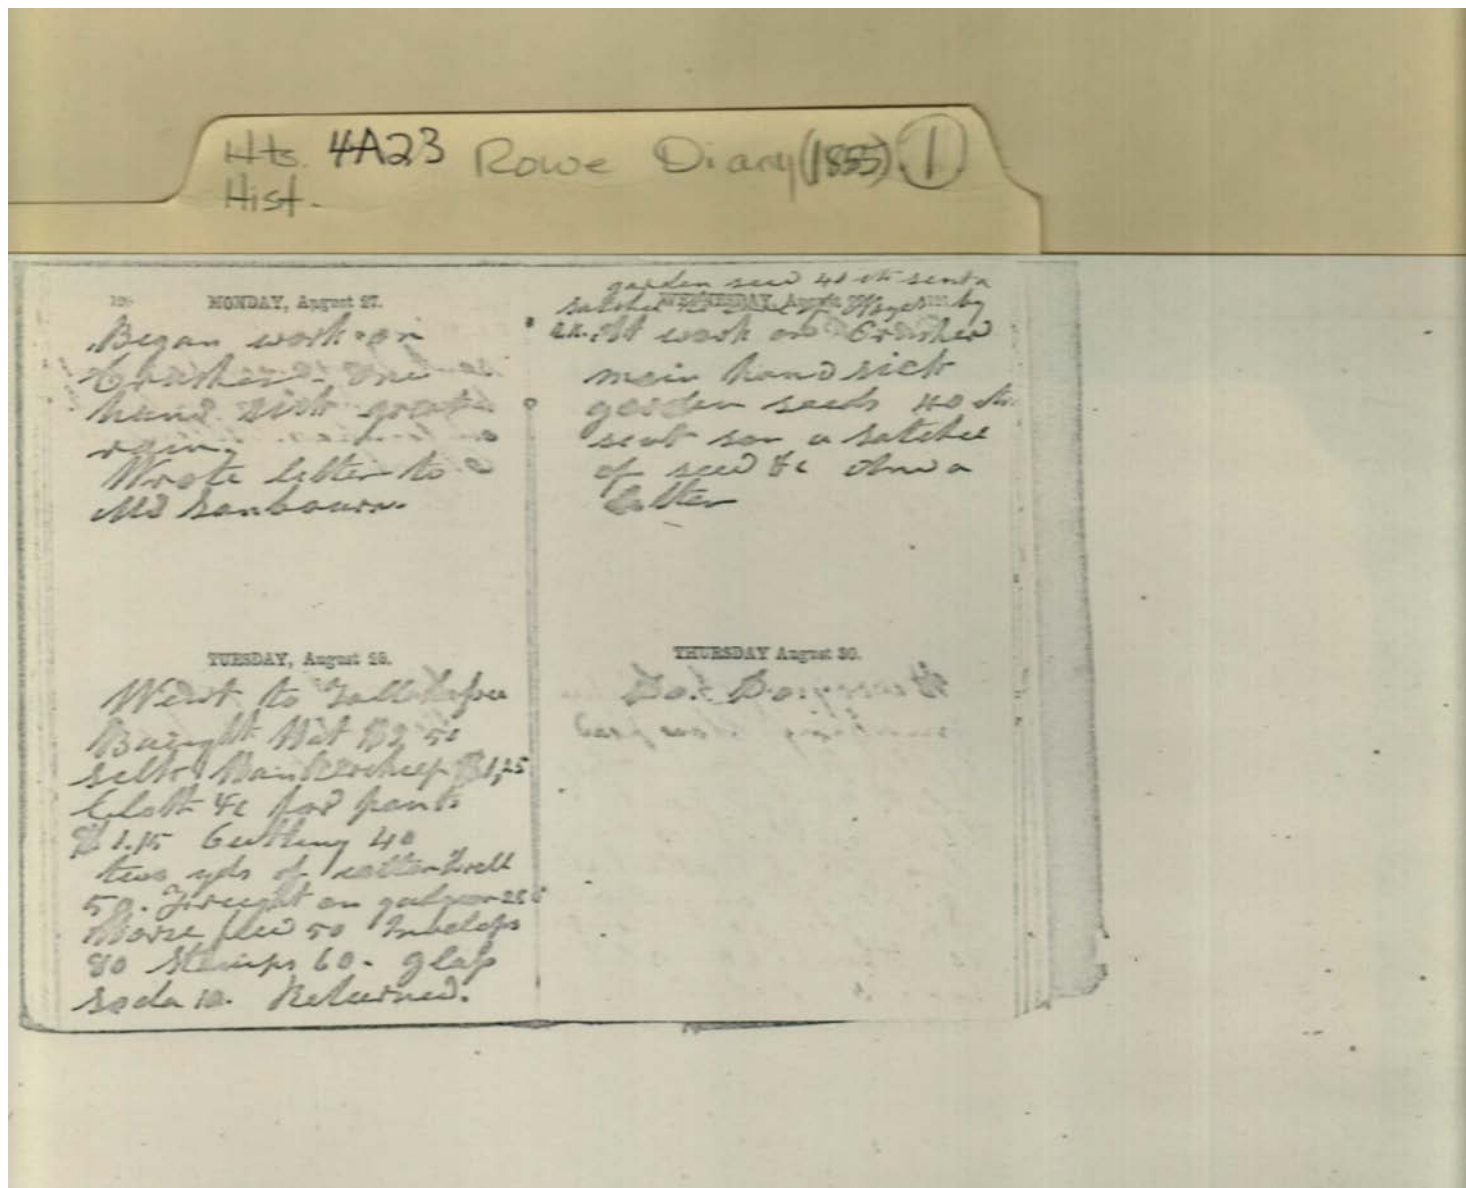 Hts. 4A23 Rowe Diary (1855) 1
Hist.
MONDAY, August 27.
Began work on
Crusher. One
hand sick great
rain.
Wrote letter to
Md Sanbourn.
TUESDAY, August 28.
Went to Tallahassee
Baught Hat $2 50
silk Hankercheif $1,25
Cloth &c for pants
$1.15 Cutting 40
two yds of cotton
50. Freight on 25
Horse feed 50 Invelops
80 Stamps 60. glass
soda 10. Returned.
garden seed 40 cts sent a
satchel by
At work on Crusher
main hand sick
garden seeds 40 cts.
sent son a satchel
of seed &c also a
letter
THURSDAY August 30.
Do. Do.